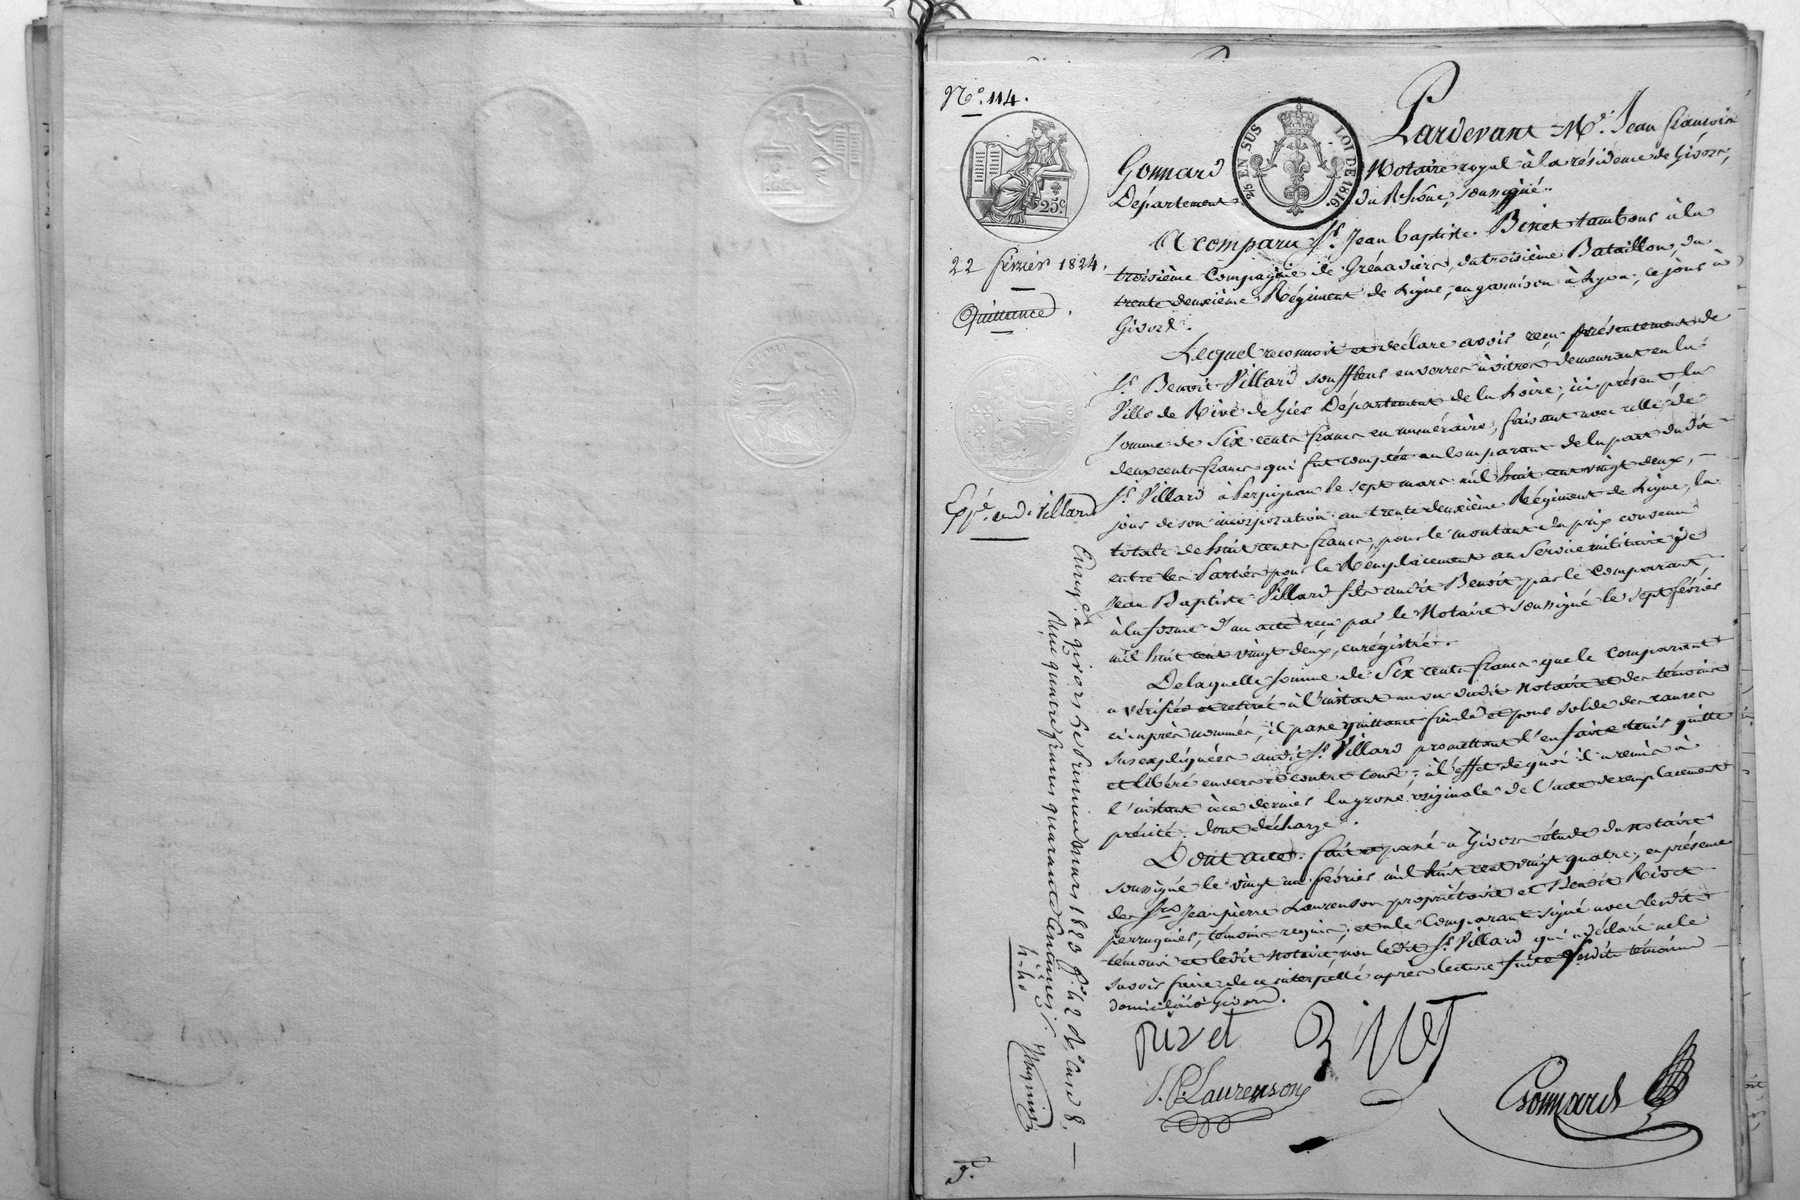 N.° 114.
25 EN SUS
LOI DE 1816.
25c.
22 février 1824.
Quittance.
Expé. au d. Villard
Pardevant M.e Jean françois
Gonnard Notaire royal à la résidence de Givors,
Département du Rhône, soussigné.
A comparu S.r Jean baptiste Binet tambour à la
troisième Compagnie de Grénadiers, du troisième Bataillon, du
trente deuxième Régiment de Ligne, en garnison à Lyon, ce jour à
Givors.
Lequel reconnoit et déclare avoir reçu présentement de
S.r Benoit Villard souffleur en verres à vitres demeurant en la
Ville de Rive de Gier Département de la Loire, ici présent la
somme de Six cents francs en numéraire, faisant avec celle de
deux cents francs qui fut comptée au Comparant de la part du dit
S.r Villard à Perpignan le sept mars mil huit cent vingt deux,
jour de son incorporation au trente deuxième Régiment de Ligne, la
totale de huit cents francs, pour le montant du prix convenu
entre les Parties pour le Remplacement au Service militaire de
Jean Baptiste Villard fils audit Benoit par le Comparant,
à la forme d'un acte reçu par le Notaire soussigné le sept février
mil huit cent vingt deux, enrégistré.
De laquelle somme de Six cents francs que le Comparant
a vérifiée et retiré à l'instant au vu dudit Notaire et des témoins
ci après nommés, il passe quittance finale et pour solde des causes
sus expliquées audit S.r Villard promettant l'en faire tenir quitte
et libéré envers et contre tous; à l'effet de quoi il a remis à
l'instant à ce dernier la grosse originale de l'acte de remplacement
précité. dont décharge.
Dont acte. fait et passé à Givors étude du Notaire
soussigné le vingt deux février mil huit cent vingt quatre, en présence
des S.rs Jean pierre Laurenson propriétaire et Benoit Rivet
perruquier, témoins requis; et a le Comparant signé avec lesdits
témoins et ledit Notaire, non ledit S.r Villard qui a déclaré ne le
savoir faire de ce interpellé après lecture faite lesdits témoins
domiciliés à Givors.
rivet Binet
J. P. Laurenson
Gonnard
Enreg.é à givors le premier mars 1823 f.° 42 V.° case 8.
Reçu quatre francs quarante centimes
4-40